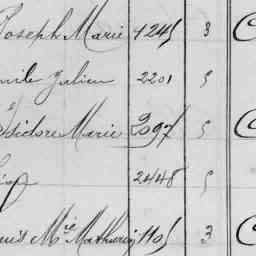 Joseph Marie 1245 3
Julien 2201 5
Isidore Marie 2097 5
2448 5
Mie Mathurin 1105 3